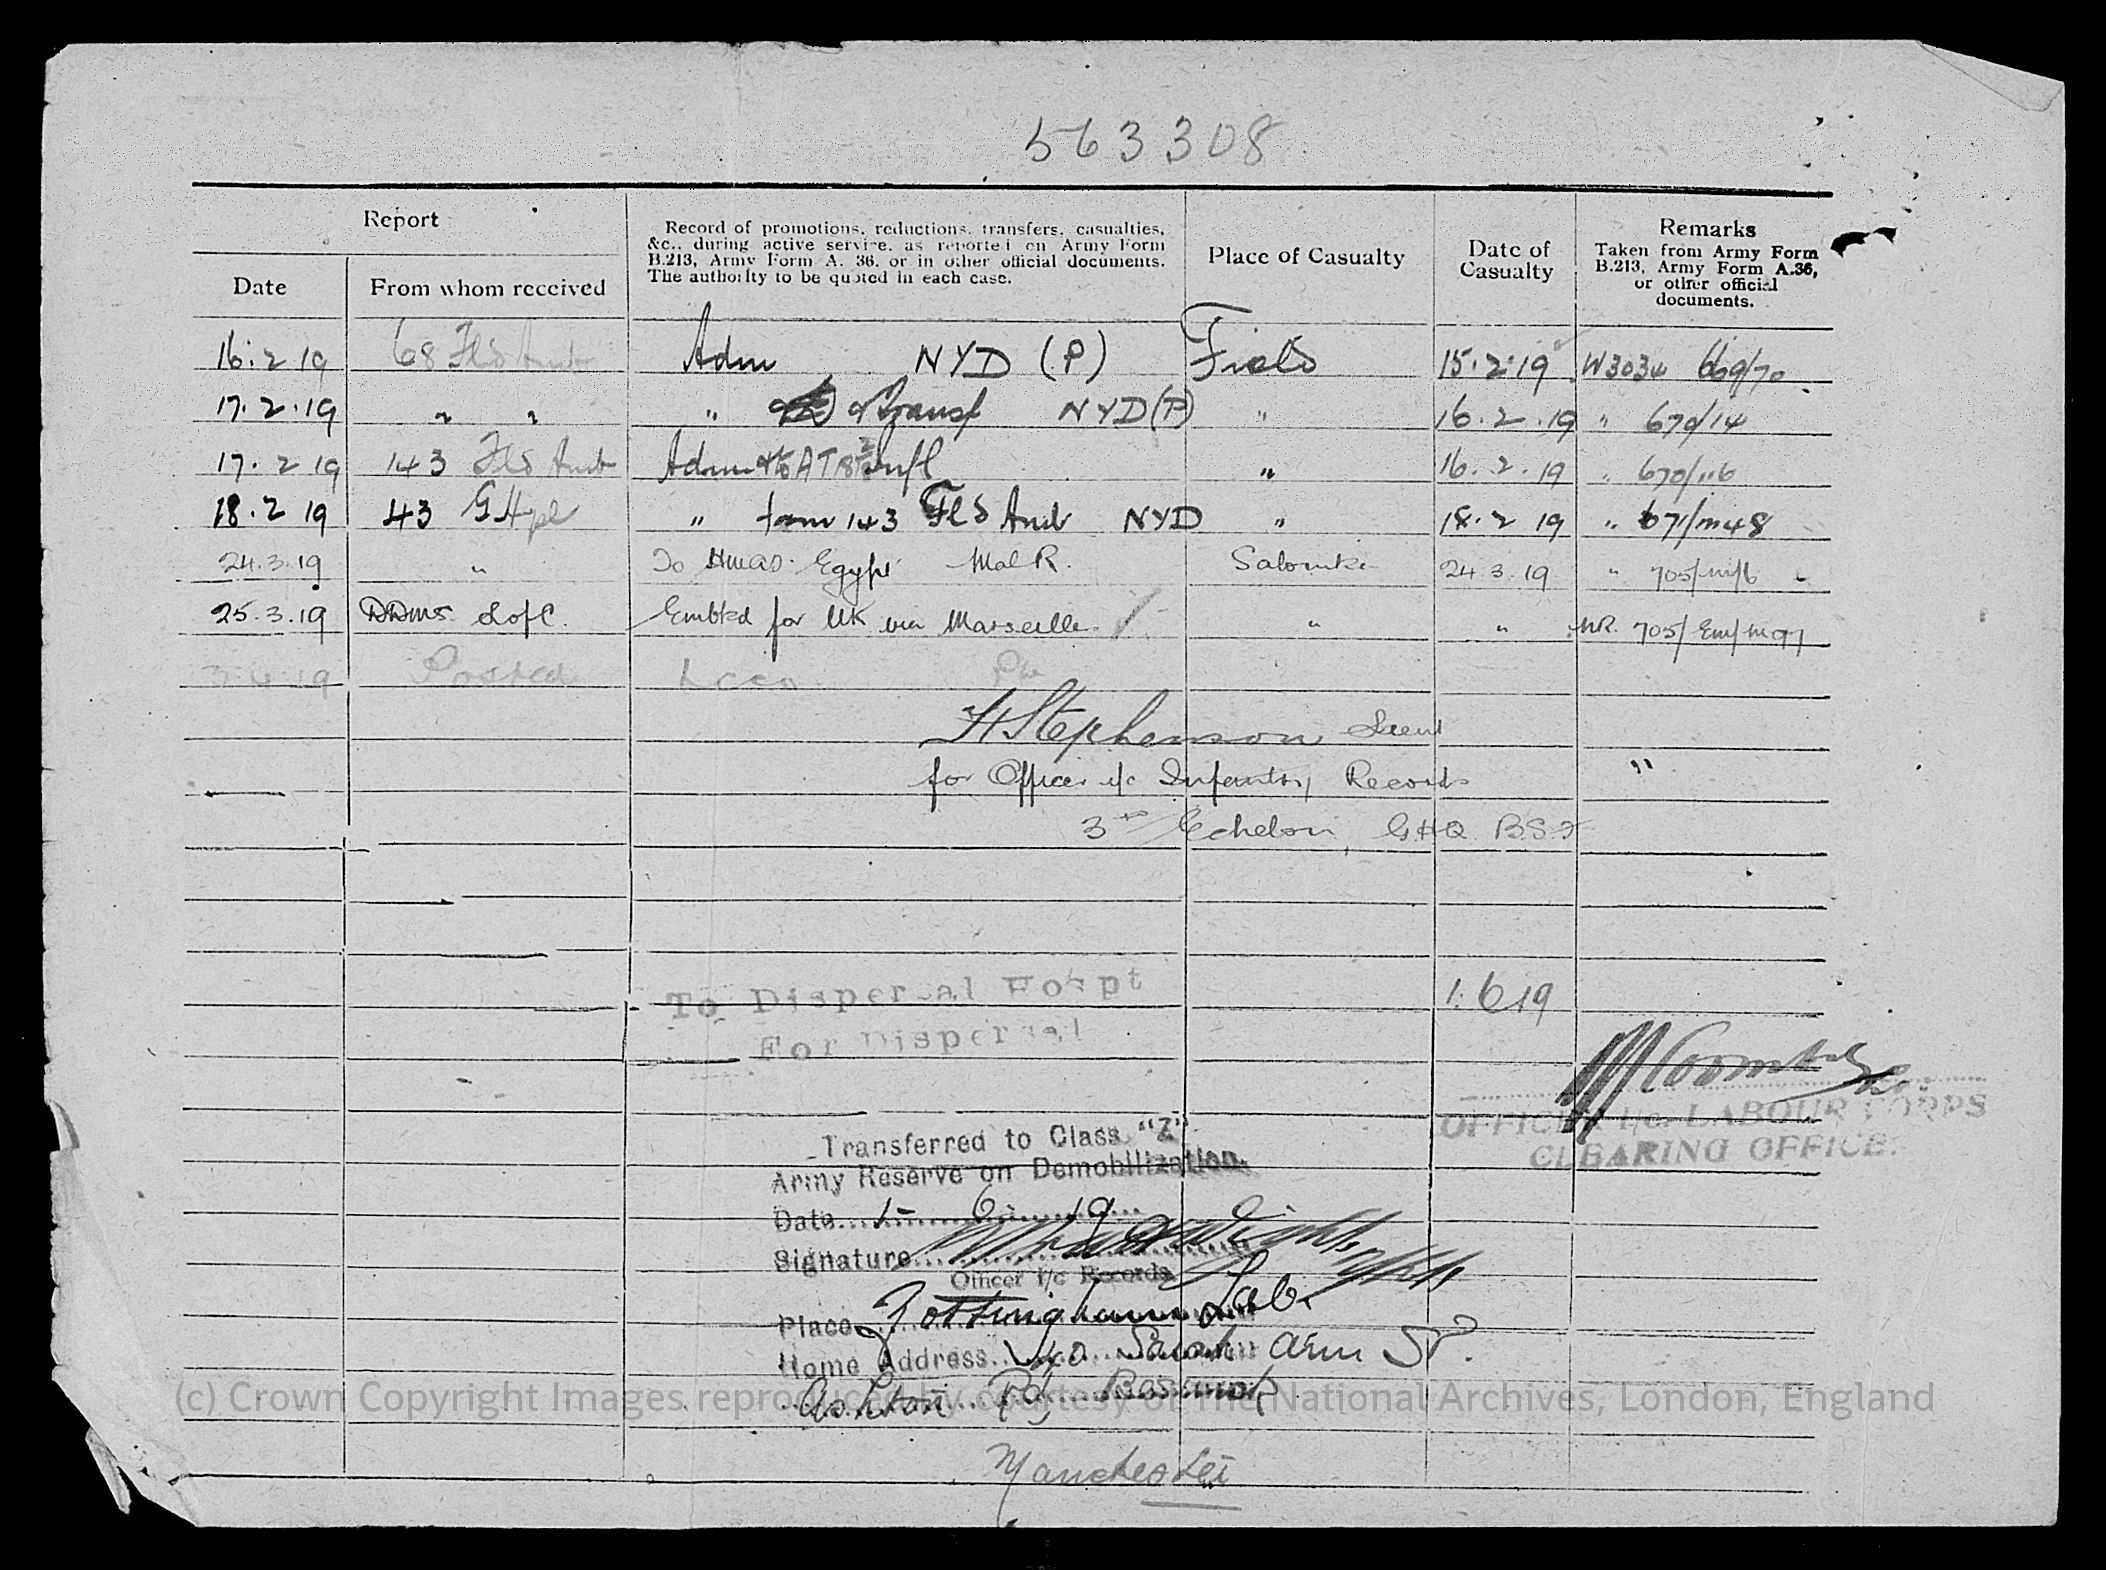 563308
Report
Date
From whom received
Record of promotions, reductions, transfers, casualties, &c., during active service, as reported on Army Form B.213, Army Form A. 36, or in other official documents. The authority to be quoted in each case.
Place of Casualty
Date of Casualty
Remarks
Taken from Army Form B.213, Army Form A.36, or other official documents.
16.2 19 68 Fld Amb Adm NYD (P) Field 15.2.19 W3034 669/70
17.2.19 " " " & transf NYD(P) " 16.2.19 " 670/14
17.2 19 143 Fld Amb Adm Infl " 16.2.19 " 670/116
18.2 19 43 G Hpl " from 143 Fld Amb NYD " 18.2 19 " 671/m48
24.3.19 " To Egypt Mal R. Salonika 24 3 19 " 705/m/6
25.3.19 DDMS LofC. Embkd for UK via Marseille " " MR. 705/Em/m97
3.4.19 Posted
H Stephenson Lieut
for Officer i/c Infantry Records
3rd Echelon, GHQ BSF
To Dispersal Hospt 1.6 19
For Dispersal
OFFICER I/c. LABOUR CORPS
CLEARING OFFICE.
Transferred to Class "Z"
Army Reserve on Demobilization.
Date 1 6 19
Signature
Officer i/c Records
Place Nottingham Lab.
Home Address 40 Sarah Ann St.
Ashton Rd Beswick
Manchester
(c) Crown Copyright Images reproduced by courtesy of The National Archives, London, England